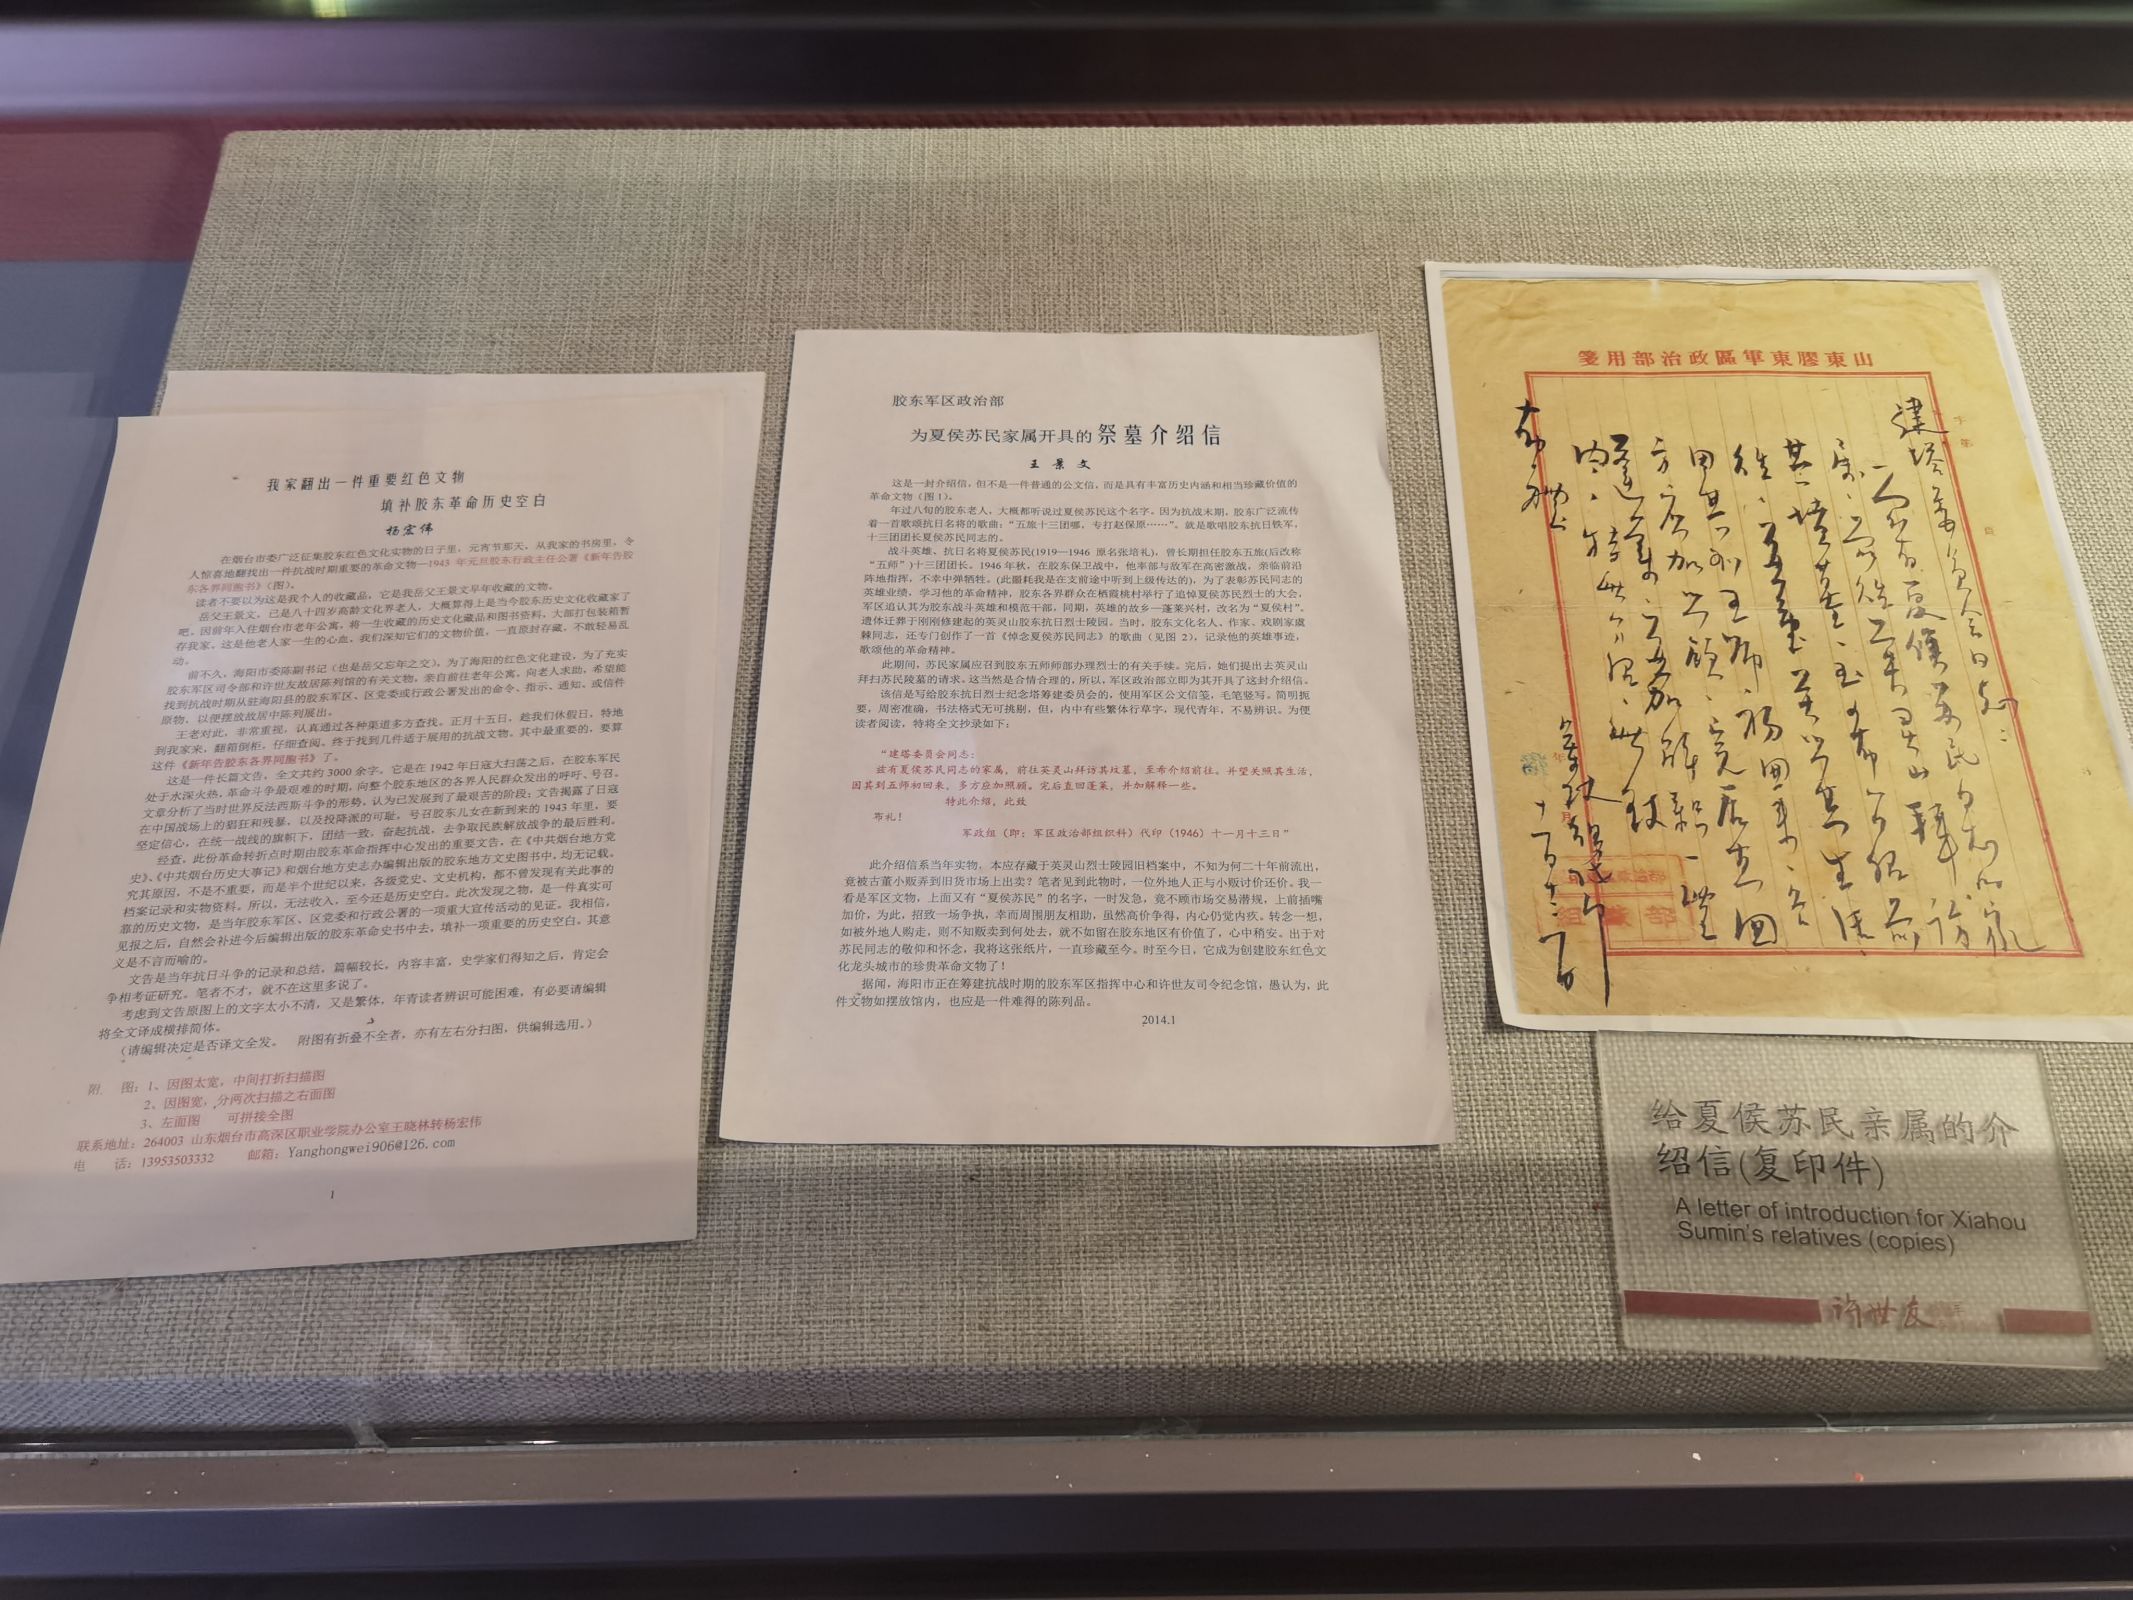 我家翻出一件重要红色文物
填补胶东革命历史空白
杨宏伟
在烟台市委广泛征集胶东红色文化实物的日子里，元宵节那天，从我家的书房里，令
人惊喜地翻找出一件抗战时期重要的革命文物—1943 年元旦胶东行政主任公署《新年告胶
东各界同胞书》（图）。
读者不要以为这是我个人的收藏品，它是我岳父王景文早年收藏的文物。
岳父王景文，已是八十四岁高龄文化界老人，大概算得上是当今胶东历史文化收藏家了
吧。因前年入住烟台市老年公寓，将一生收藏的历史文化藏品和图书资料，大部打包装箱暂
存我家。这是他老人家一生的心血，我们深知它们的文物价值，一直原封存藏，不敢轻易乱
动。
前不久，海阳市委陈副书记（也是岳父忘年之交），为了海阳的红色文化建设，为了充实
胶东军区司令部和许世友故居陈列馆的有关文物，亲自前往老年公寓，向老人求助，希望能
找到抗战时期从驻海阳县的胶东军区、区党委或行政公署发出的命令、指示、通知、或信件
原物，以便摆放故居中陈列展出。
王老对此，非常重视，认真通过各种渠道多方查找。正月十五日，趁我们休假日，特地
到我家来，翻箱倒柜，仔细查阅。终于找到几件适于展用的抗战文物。其中最重要的，要算
这件《新年告胶东各界同胞书》了。
这是一件长篇文告，全文共约 3000 余字。它是在 1942 年日寇大扫荡之后，在胶东军民
处于水深火热，革命斗争最艰难的时期，向整个胶东地区的各界人民群众发出的呼吁、号召。
文章分析了当时世界反法西斯斗争的形势，认为已发展到了最艰苦的阶段；文告揭露了日寇
在中国战场上的猖狂和残暴，以及投降派的可耻，号召胶东儿女在新到来的 1943 年里，要
坚定信心，在统一战线的旗帜下，团结一致，奋起抗战，去争取民族解放战争的最后胜利。
经查，此份革命转折点时期由胶东革命指挥中心发出的重要文告，在《中共烟台地方党
史》、《中共烟台历史大事记》和烟台地方史志办编辑出版的胶东地方文史图书中，均无记载。
究其原因，不是不重要，而是半个世纪以来，各级党史、文史机构，都不曾发现有关此事的
档案记录和实物资料。所以，无法收入，至今还是历史空白。此次发现之物，是一件真实可
靠的历史文物，是当年胶东军区、区党委和行政公署的一项重大宣传活动的见证。我相信，
见报之后，自然会补进今后编辑出版的胶东革命史书中去，填补一项重要的历史空白。其意
义是不言而喻的。
文告是当年抗日斗争的记录和总结，篇幅较长，内容丰富，史学家们得知之后，肯定会
争相考证研究。笔者不才，就不在这里多说了。
考虑到文告原图上的文字太小不清，又是繁体，年青读者辨识可能困难，有必要请编辑
将全文译成横排简体。
（请编辑决定是否译文全发。 附图有折叠不全者，亦有左右分扫图，供编辑选用。）
附 图：1、因图太宽，中间打折扫描图
2、因图宽，分两次扫描之右面图
3、左面图 可拼接全图
联系地址：264003 山东烟台市高深区职业学院办公室王晓林转杨宏伟
电 话：13953503332 邮箱：Yanghongwei906@126.com
1
胶东军区政治部
为夏侯苏民家属开具的祭墓介绍信
王景文
这是一封介绍信，但不是一件普通的公文信，而是具有丰富历史内涵和相当珍藏价值的
革命文物（图1）。
年过八旬的胶东老人，大概都听说过夏侯苏民这个名字。因为抗战末期，胶东广泛流传
着一首歌颂抗日名将的歌曲：“五旅十三团哪，专打赵保原……”。就是歌唱胶东抗日铁军，
十三团团长夏侯苏民同志的。
战斗英雄、抗日名将夏侯苏民(1919—1946 原名张培礼)，曾长期担任胶东五旅(后改称
“五师”)十三团团长。1946 年秋，在胶东保卫战中，他率部与敌军在高密激战，亲临前沿
阵地指挥，不幸中弹牺牲。(此噩耗我是在支前途中听到上级传达的)，为了表彰苏民同志的
英雄业绩，学习他的革命精神，胶东各界群众在栖霞桃村举行了追悼夏侯苏民烈士的大会，
军区追认其为胶东战斗英雄和模范干部，同期，英雄的故乡—蓬莱兴村，改名为“夏侯村”。
遗体迁葬于刚刚修建起的英灵山胶东抗日烈士陵园。当时，胶东文化名人、作家、戏剧家虞
棘同志，还专门创作了一首《悼念夏侯苏民同志》的歌曲（见图 2），记录他的英雄事迹，
歌颂他的革命精神。
此期间，苏民家属应召到胶东五师师部办理烈士的有关手续。完后，她们提出去英灵山
拜扫苏民陵墓的请求。这当然是合情合理的，所以，军区政治部立即为其开具了这封介绍信。
该信是写给胶东抗日烈士纪念塔筹建委员会的，使用军区公文信笺，毛笔竖写。简明扼
要，周密准确，书法格式无可挑剔，但，内中有些繁体行草字，现代青年，不易辨识。为便
读者阅读，特将全文抄录如下：
“建塔委员会同志：
兹有夏侯苏民同志的家属，前往英灵山拜访其坟墓，至希介绍前往。并望关照其生活，
因其到五师初回来，多方应加照顾。完后直回蓬莱，并加解释一些。
特此介绍，此致
布礼！
军政组（即：军区政治部组织科）代印（1946）十一月十三日”
此介绍信系当年实物，本应存藏于英灵山烈士陵园旧档案中，不知为何二十年前流出，
竟被古董小贩弄到旧货市场上出卖？笔者见到此物时，一位外地人正与小贩讨价还价。我一
看是军区文物，上面又有“夏侯苏民”的名字，一时发急，竟不顾市场交易潜规，上前插嘴
加价，为此，招致一场争执，幸而周围朋友相助，虽然高价争得，内心仍觉内疚。转念一想，
如被外地人购走，则不知贩卖到何处去，就不如留在胶东地区有价值了，心中稍安。出于对
苏民同志的敬仰和怀念，我将这张纸片，一直珍藏至今。时至今日，它成为创建胶东红色文
化龙头城市的珍贵革命文物了！
据闻，海阳市正在筹建抗战时期的胶东军区指挥中心和许世友司令纪念馆，愚认为，此
件文物如摆放馆内，也应是一件难得的陈列品。
2014.1
山東膠東軍區政治部用箋
组織部
给夏侯苏民亲属的介
绍信(复印件)
A letter of introduction for Xiahou
Sumin's relatives (copies)
许世友